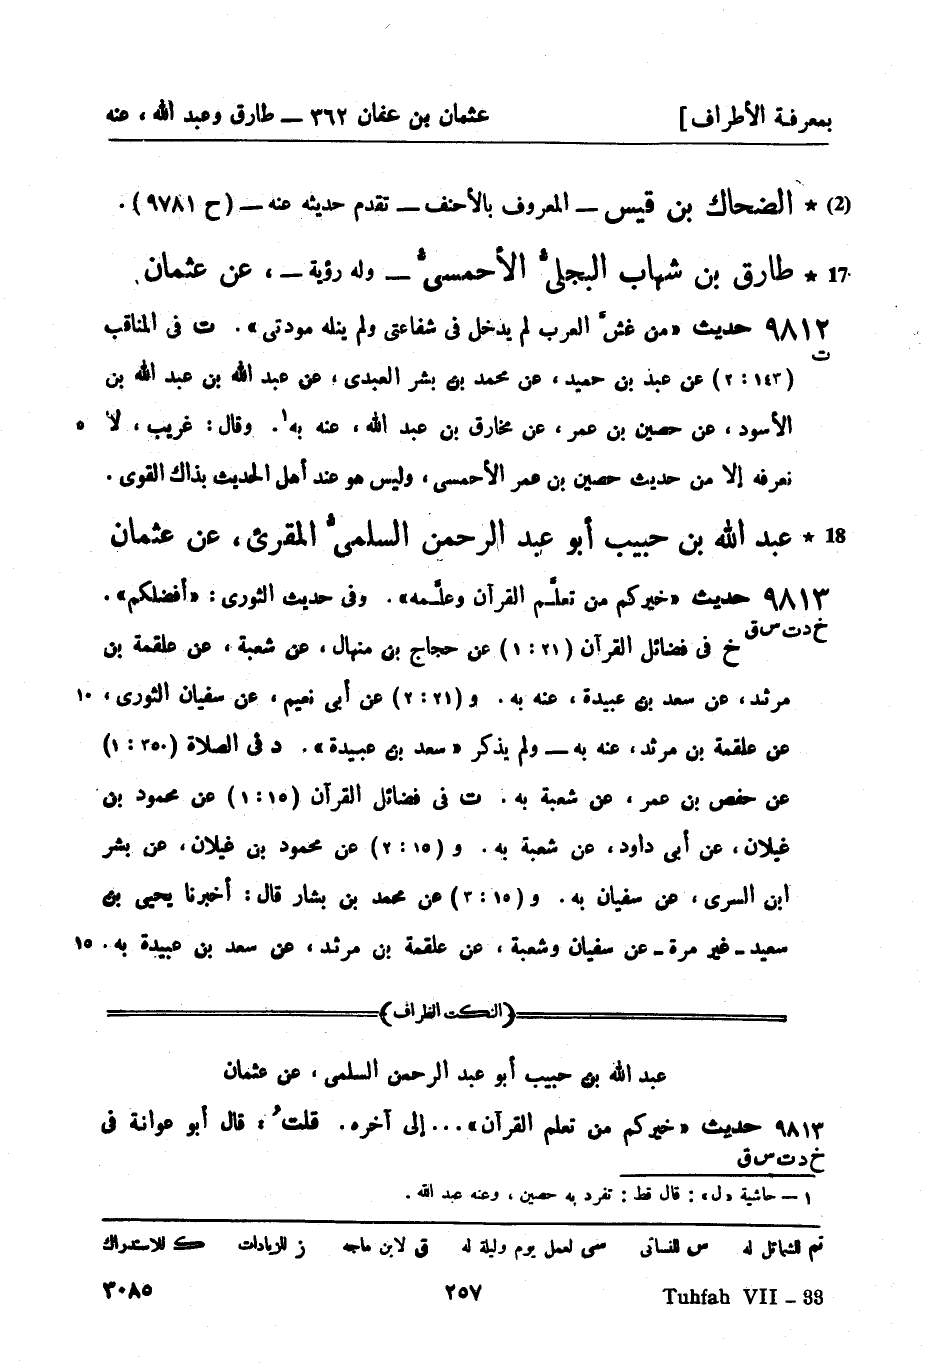 بمعرفة الأطراف] عثمان بن عفان ٣٦٢ — طارق وعبد الله ، عنه
(2) * الضحاك بن قيس — المعروف بالأحنف — تقدم حديثه عنه — (ح ٩٧٨١) .
17 * طارق بن شهاب البجليّ الأحمسيّ — وله رؤية — ، عن عثمان
٩٨١٢ حديث «من غشّ العرب لم يدخل فى شفاعتى ولم ينله مودتى» . ت فى المناقب
ت
(١٤٣ : ٢) عن عبد بن حميد ، عن محمد بن بشر العبدى ، عن عبد الله بن عبد الله بن
الأسود ، عن حصين بن عمر ، عن مخارق بن عبد الله ، عنه به١ . وقال : غريب ، لا ٥
نعرفه إلا من حديث حصين بن عمر الأحمسى ، وليس هو عند أهل الحديث بذاك القوى .
18 * عبد الله بن حبيب أبو عبد الرحمن السلميّ المقرئ ، عن عثمان
٩٨١٣ حديث «خيركم من تعلَّم القرآن وعلَّمه» . وفى حديث الثورى : «أفضلكم» .
خ د ت س ق
خ فى فضائل القرآن (٢١ : ١) عن حجاج بن منهال ، عن شعبة ، عن علقمة بن
مرثد ، عن سعد بن عبيدة ، عنه به . و (٢١ : ٢) عن أبى نعيم ، عن سفيان الثورى ، ١٠
عن علقمة بن مرثد ، عنه به — ولم يذكر «سعد بن عبيدة» . د فى الصلاة (٣٥٠ : ١)
عن حفص بن عمر ، عن شعبة به . ت فى فضائل القرآن (١٥ : ١) عن محمود بن
غيلان ، عن أبى داود ، عن شعبة به . و (١٥ : ٢) عن محمود بن غيلان ، عن بشر
ابن السرى ، عن سفيان به . و (١٥ : ٣) عن محمد بن بشار قال : أخبرنا يحيى بن
سعيد - غير مرة - عن سفيان وشعبة ، عن علقمة بن مرثد ، عن سعد بن عبيدة به . ١٥
(النكت الظراف)
عبد الله بن حبيب أبو عبد الرحمن السلمى ، عن عثمان
٩٨١٣ حديث «خيركم من تعلم القرآن» ... إلى آخره . قلتُ : قال أبو عوانة فى
خ د ت س ق
١ — حاشية «ل» : قال قط : تفرد به حصين ، وعنه عبد الله .
تم الشمائل له س للنسائى سى لعمل يوم وليلة له ق لابن ماجه ز للزيادات ك للاستدراك
Tuhfah VII – 33 ٢٥٧ ٣٠٨٥